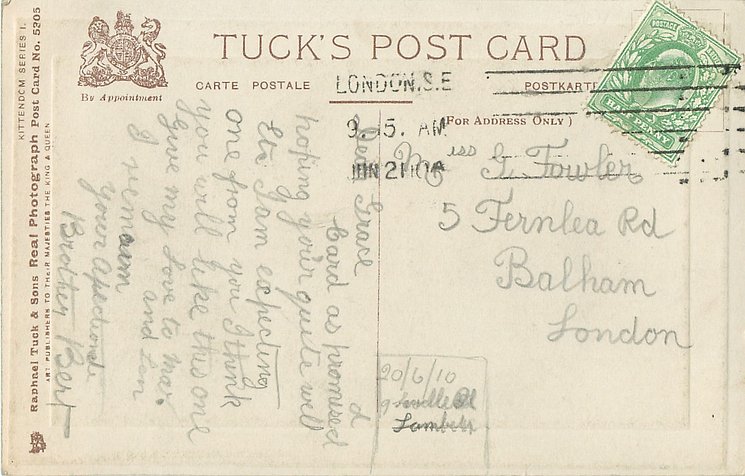 TUCK'S POST CARD
CARTE POSTALE
POSTKARTE
By Appointment
(FOR ADDRESS ONLY)
LONDON. S.E
9.15. AM
JUN 21 10
POSTAGE
HALFPENNY
KITTENDOM SERIES I.
Raphael Tuck & Sons Real Photograph Post Card No. 5205
ART PUBLISHERS TO THEIR MAJESTIES THE KING & QUEEN
Miss G. Fowler
5 Fernlea Rd
Balham
London
20/6/10
Lambeth
Dear Grace
Card as promised
hoping your quite well
etc I am expecting
one from you I think
you will like this one
Give my love to ma.
and Len
I remain
your affectionate
Brother Bert